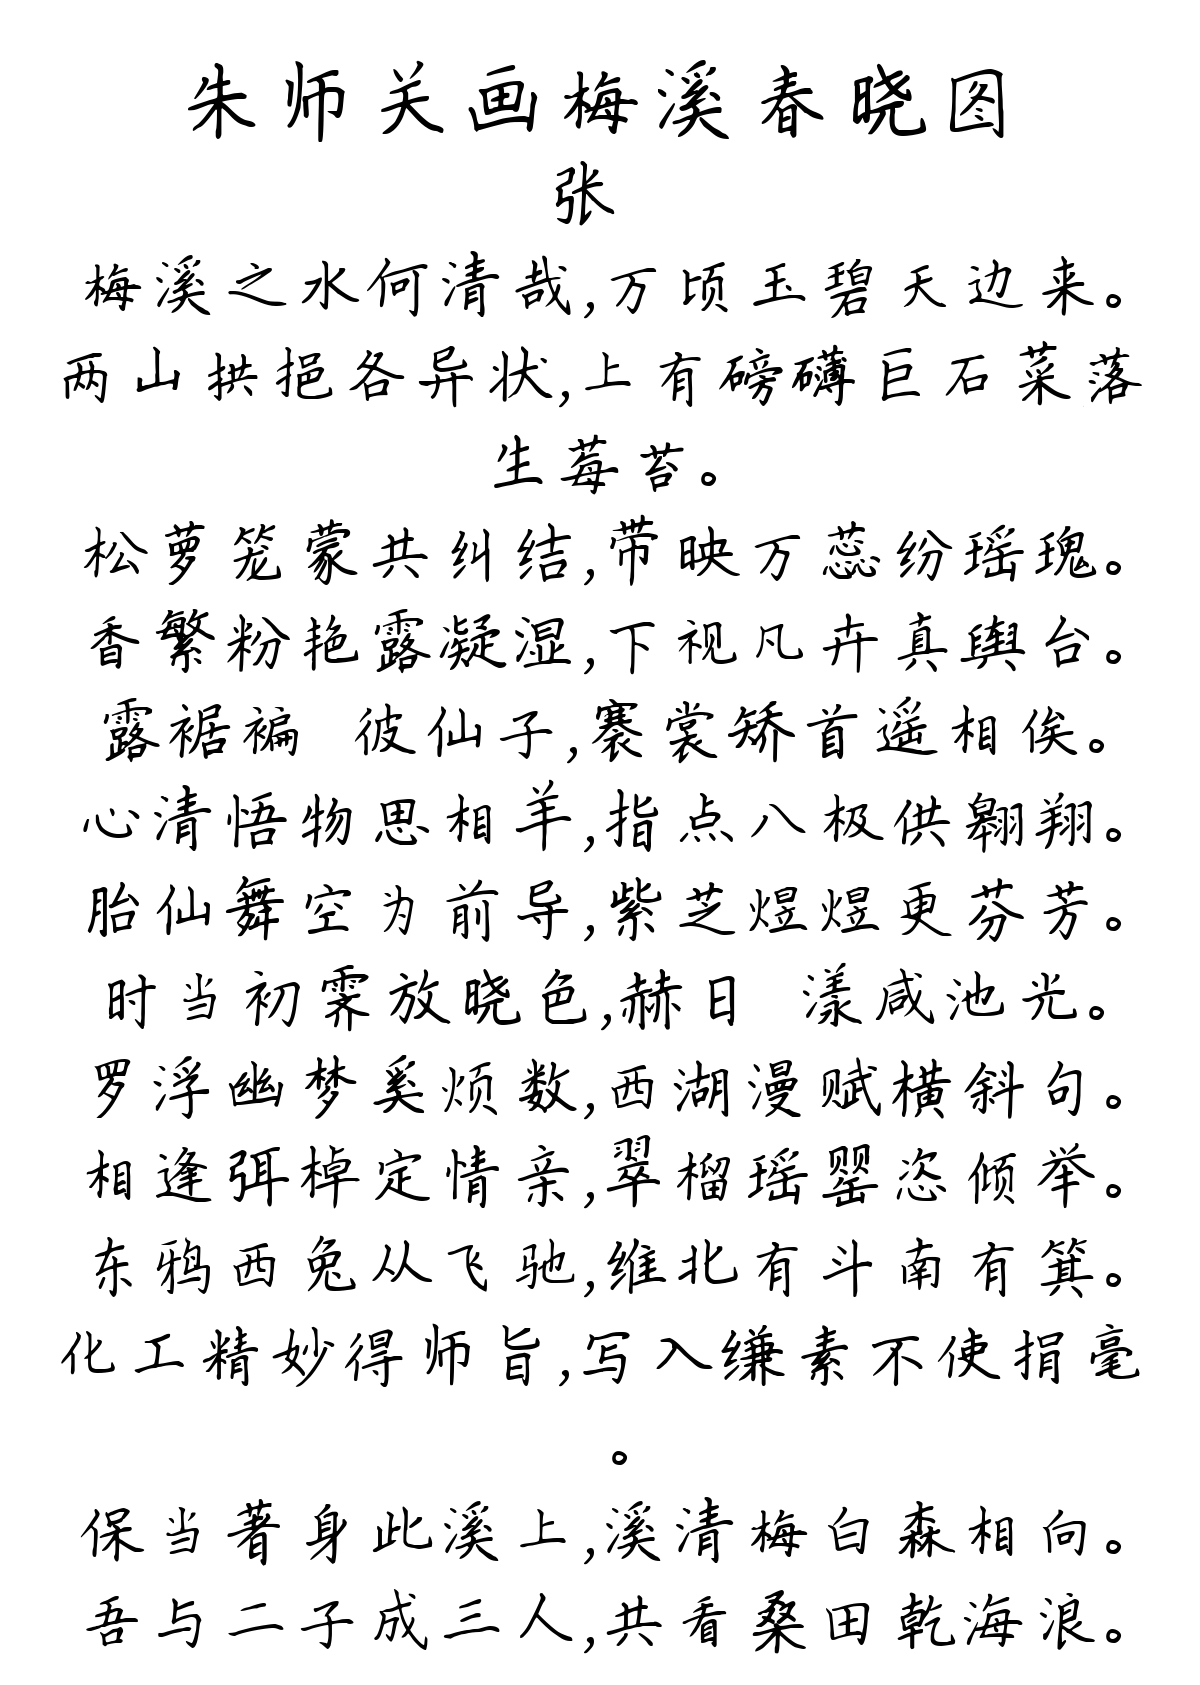 朱师关画梅溪春晓图
张
梅溪之水何清哉,万顷玉碧天边来。
两山拱挹各异状,上有磅礴巨石菜落
生莓苔。
松萝笼蒙共纠结,带映万蕊纷瑶瑰。
香繁粉艳露凝湿,下视凡卉真舆台。
露裾褊 彼仙子,褰裳矫首遥相俟。
心清悟物思相羊,指点八极供翱翔。
胎仙舞空为前导,紫芝煜煜更芬芳。
时当初霁放晓色,赫日 漾咸池光。
罗浮幽梦奚烦数,西湖漫赋横斜句。
相逢弭棹定情亲,翠榴瑶罂恣倾举。
东鸦西兔从飞驰,维北有斗南有箕。
化工精妙得师旨,写入缣素不使捐毫
。
保当著身此溪上,溪清梅白森相向。
吾与二子成三人,共看桑田乾海浪。